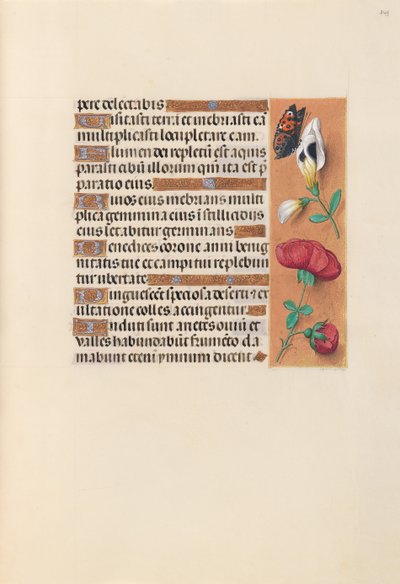 pere delectabis
Visitasti terrã et inebriasti eã
multiplicasti locupletare eam.
Flumen dei repletũ est aquis
parasti cibũ illorum qm̃ ita est p̃
paratio eius
Riuos eius inebrians multi
plica genimina eius ĩ stillicidijs
eius letabitur germinans
Benedices corone anni benig
nitatis tue et campi tui replebun
tur ubertate
Pinguescẽt speciosa deserti: et ex
ultatione colles accingentur
Induti sunt arietes ouiũ et
valles habundabũt frumẽto cla
mabunt etenĩ ymnum dicent